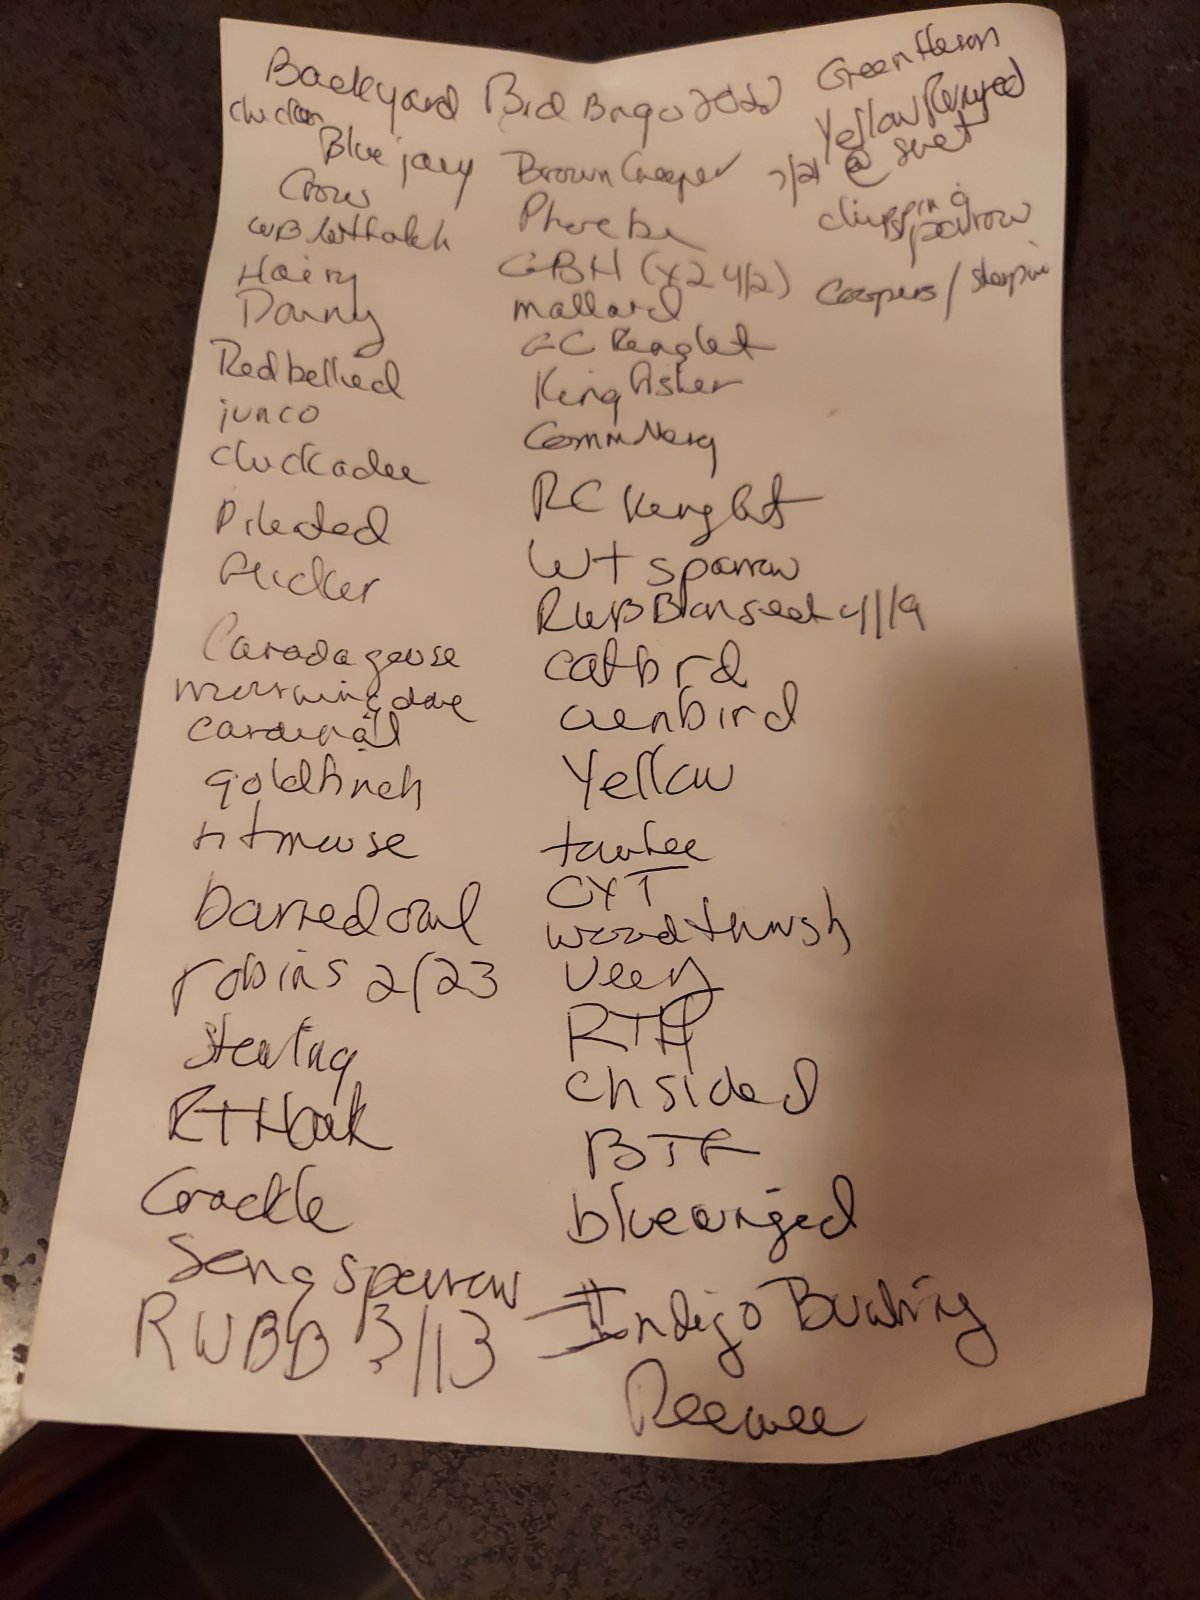 Backyard Bird Bingo 2022
chicken
Blue jay
Crow
WB Nuthatch
Hairy
Downy
Red bellied
junco
chickadee
Pileated
flicker
Canada goose
mourning dove
cardinal
goldfinch
titmouse
barred owl
robins 2/23
starling
RT Hawk
Grackle
Song sparrow
RWBB 3/13
Brown Creeper
Phoebe
GBH (x2 4/2)
mallard
GC Kinglet
King fisher
Comm Merg
RC Kinglet
WT sparrow
RWBB on seed 4/19
catbird
ovenbird
Yellow
towhee
CYT
wood thrush
veery
RTH
Ch sided
BTG
bluewinged
Indigo Bunting
Peewee
Green Heron
Yellow Rumped
@ suet
chipping
sparrow
Coopers / sharpie